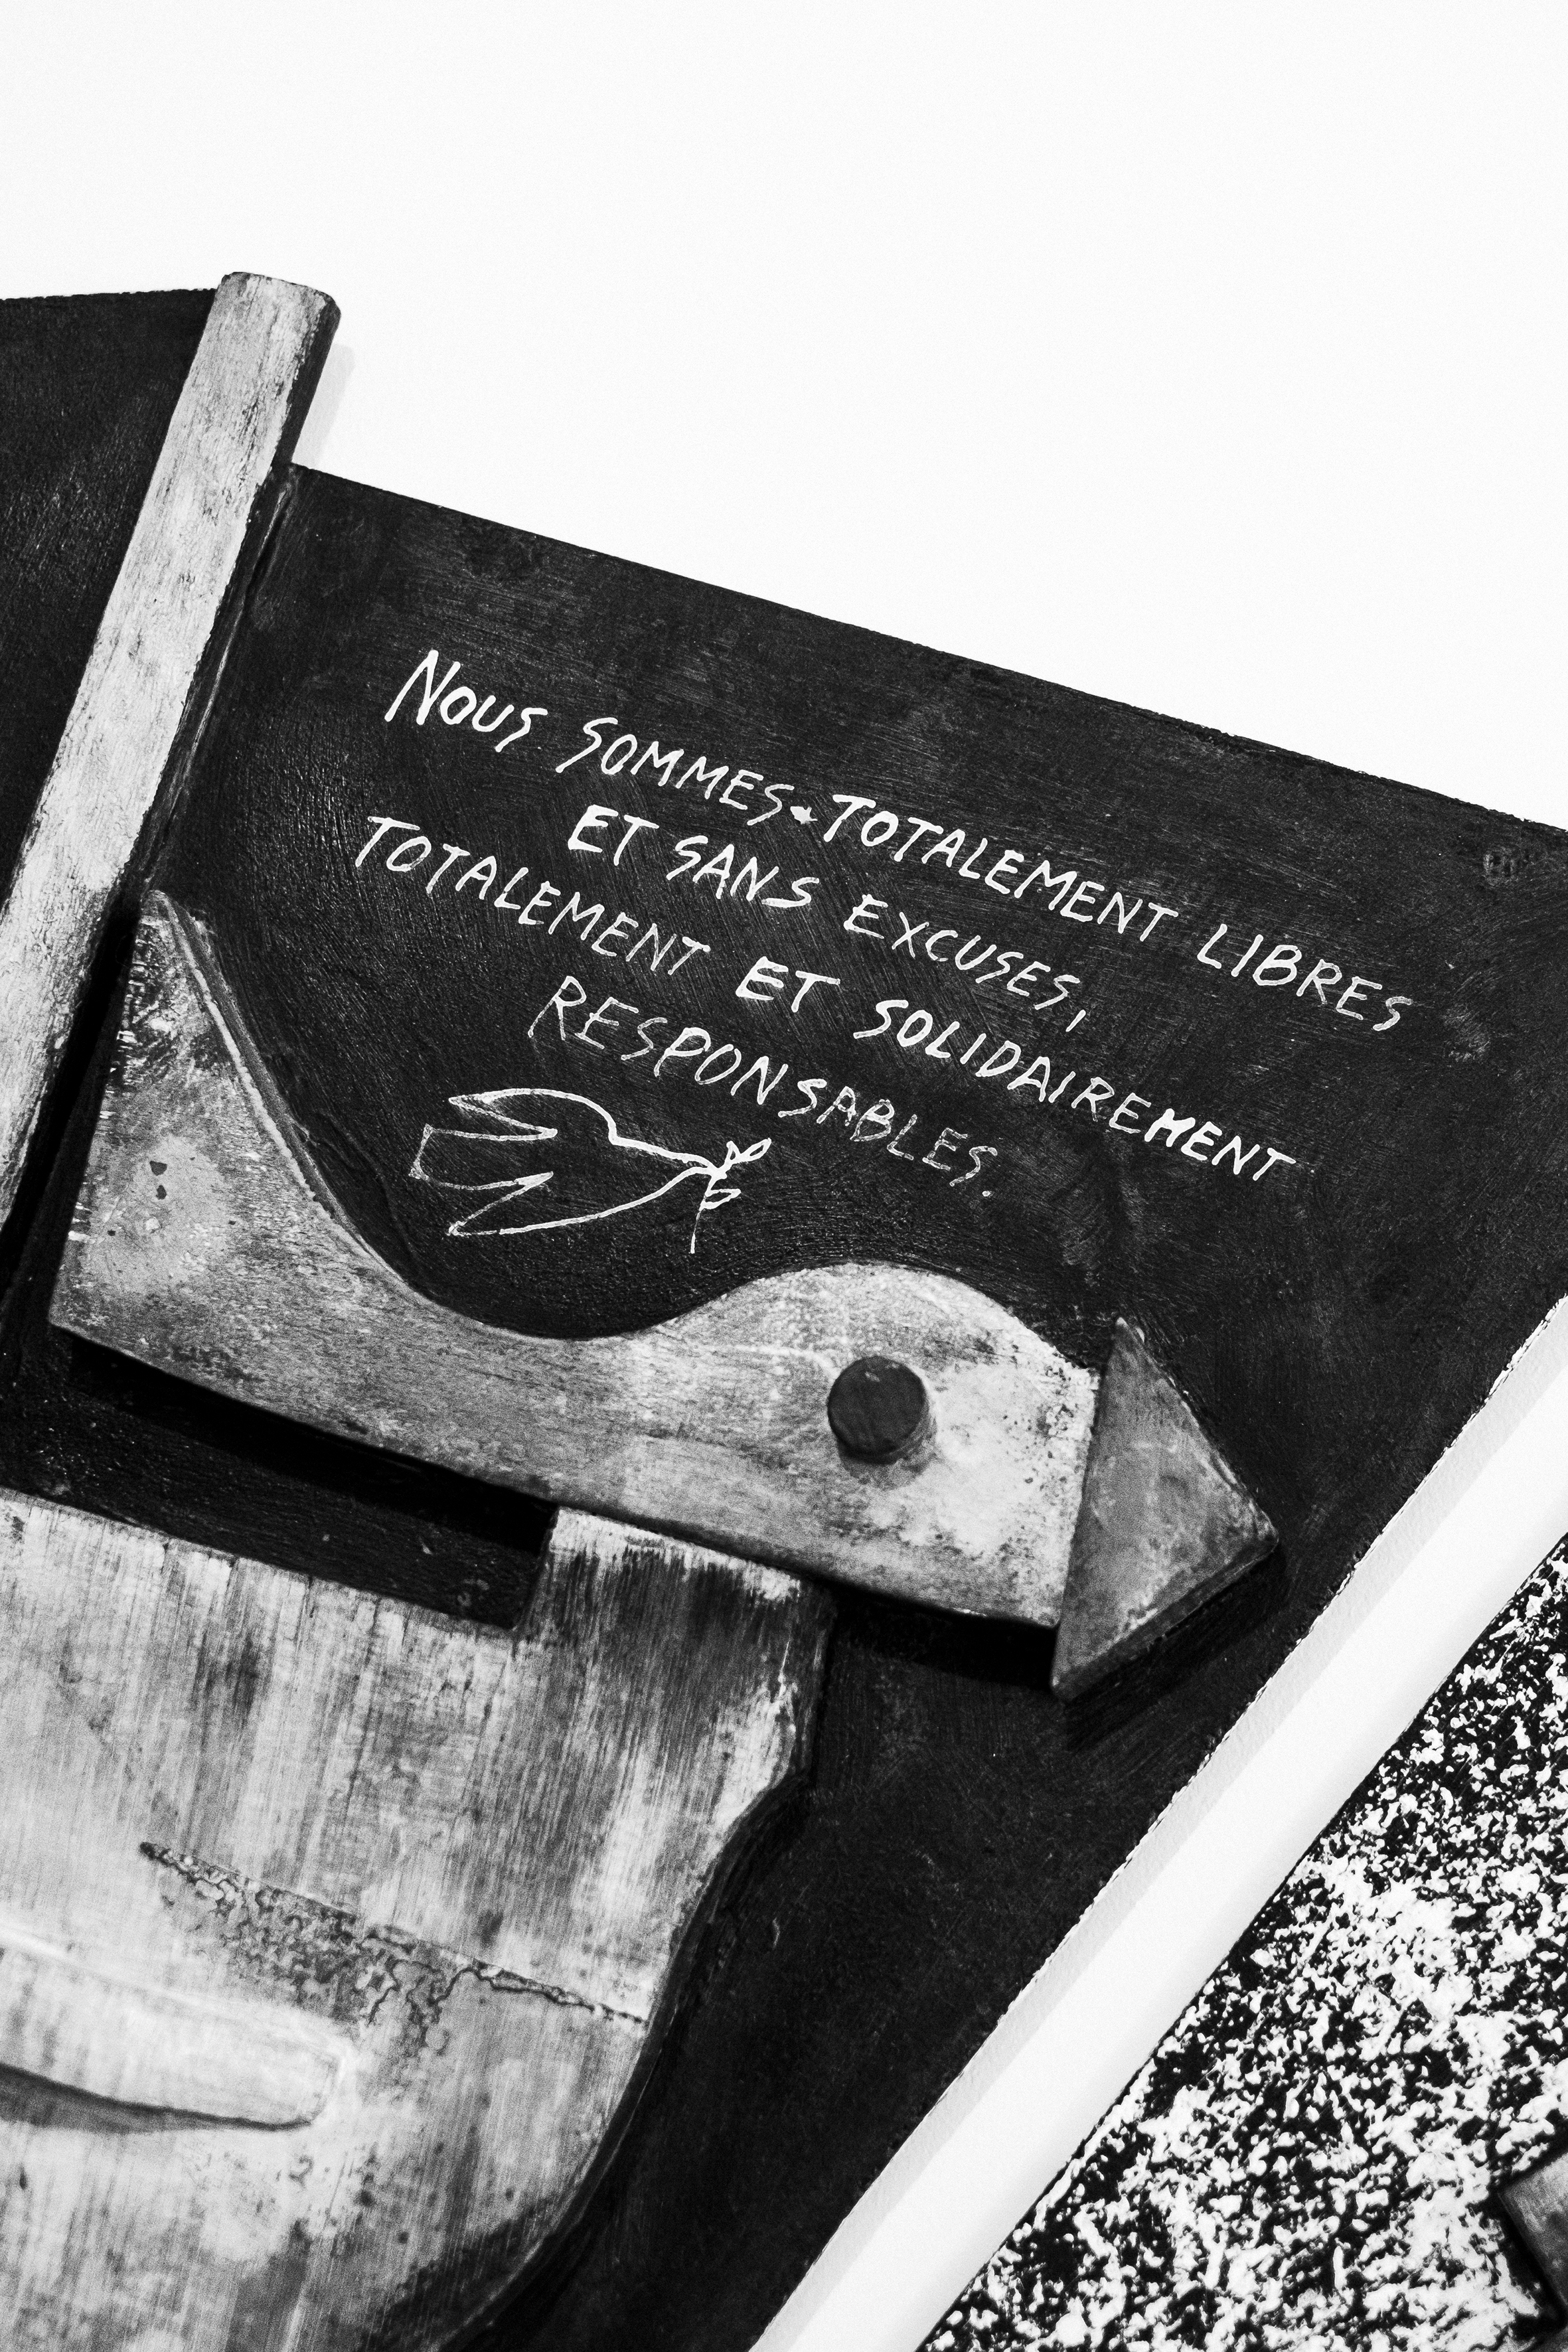 NOUS SOMMES TOTALEMENT LIBRES
ET SANS EXCUSES,
TOTALEMENT ET SOLIDAIREMENT
RESPONSABLES.